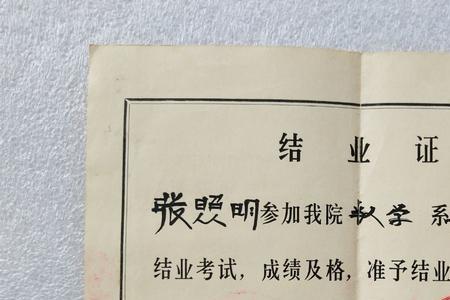 结业证
张照明参加我院 学系
结业考试，成绩及格，准予结业